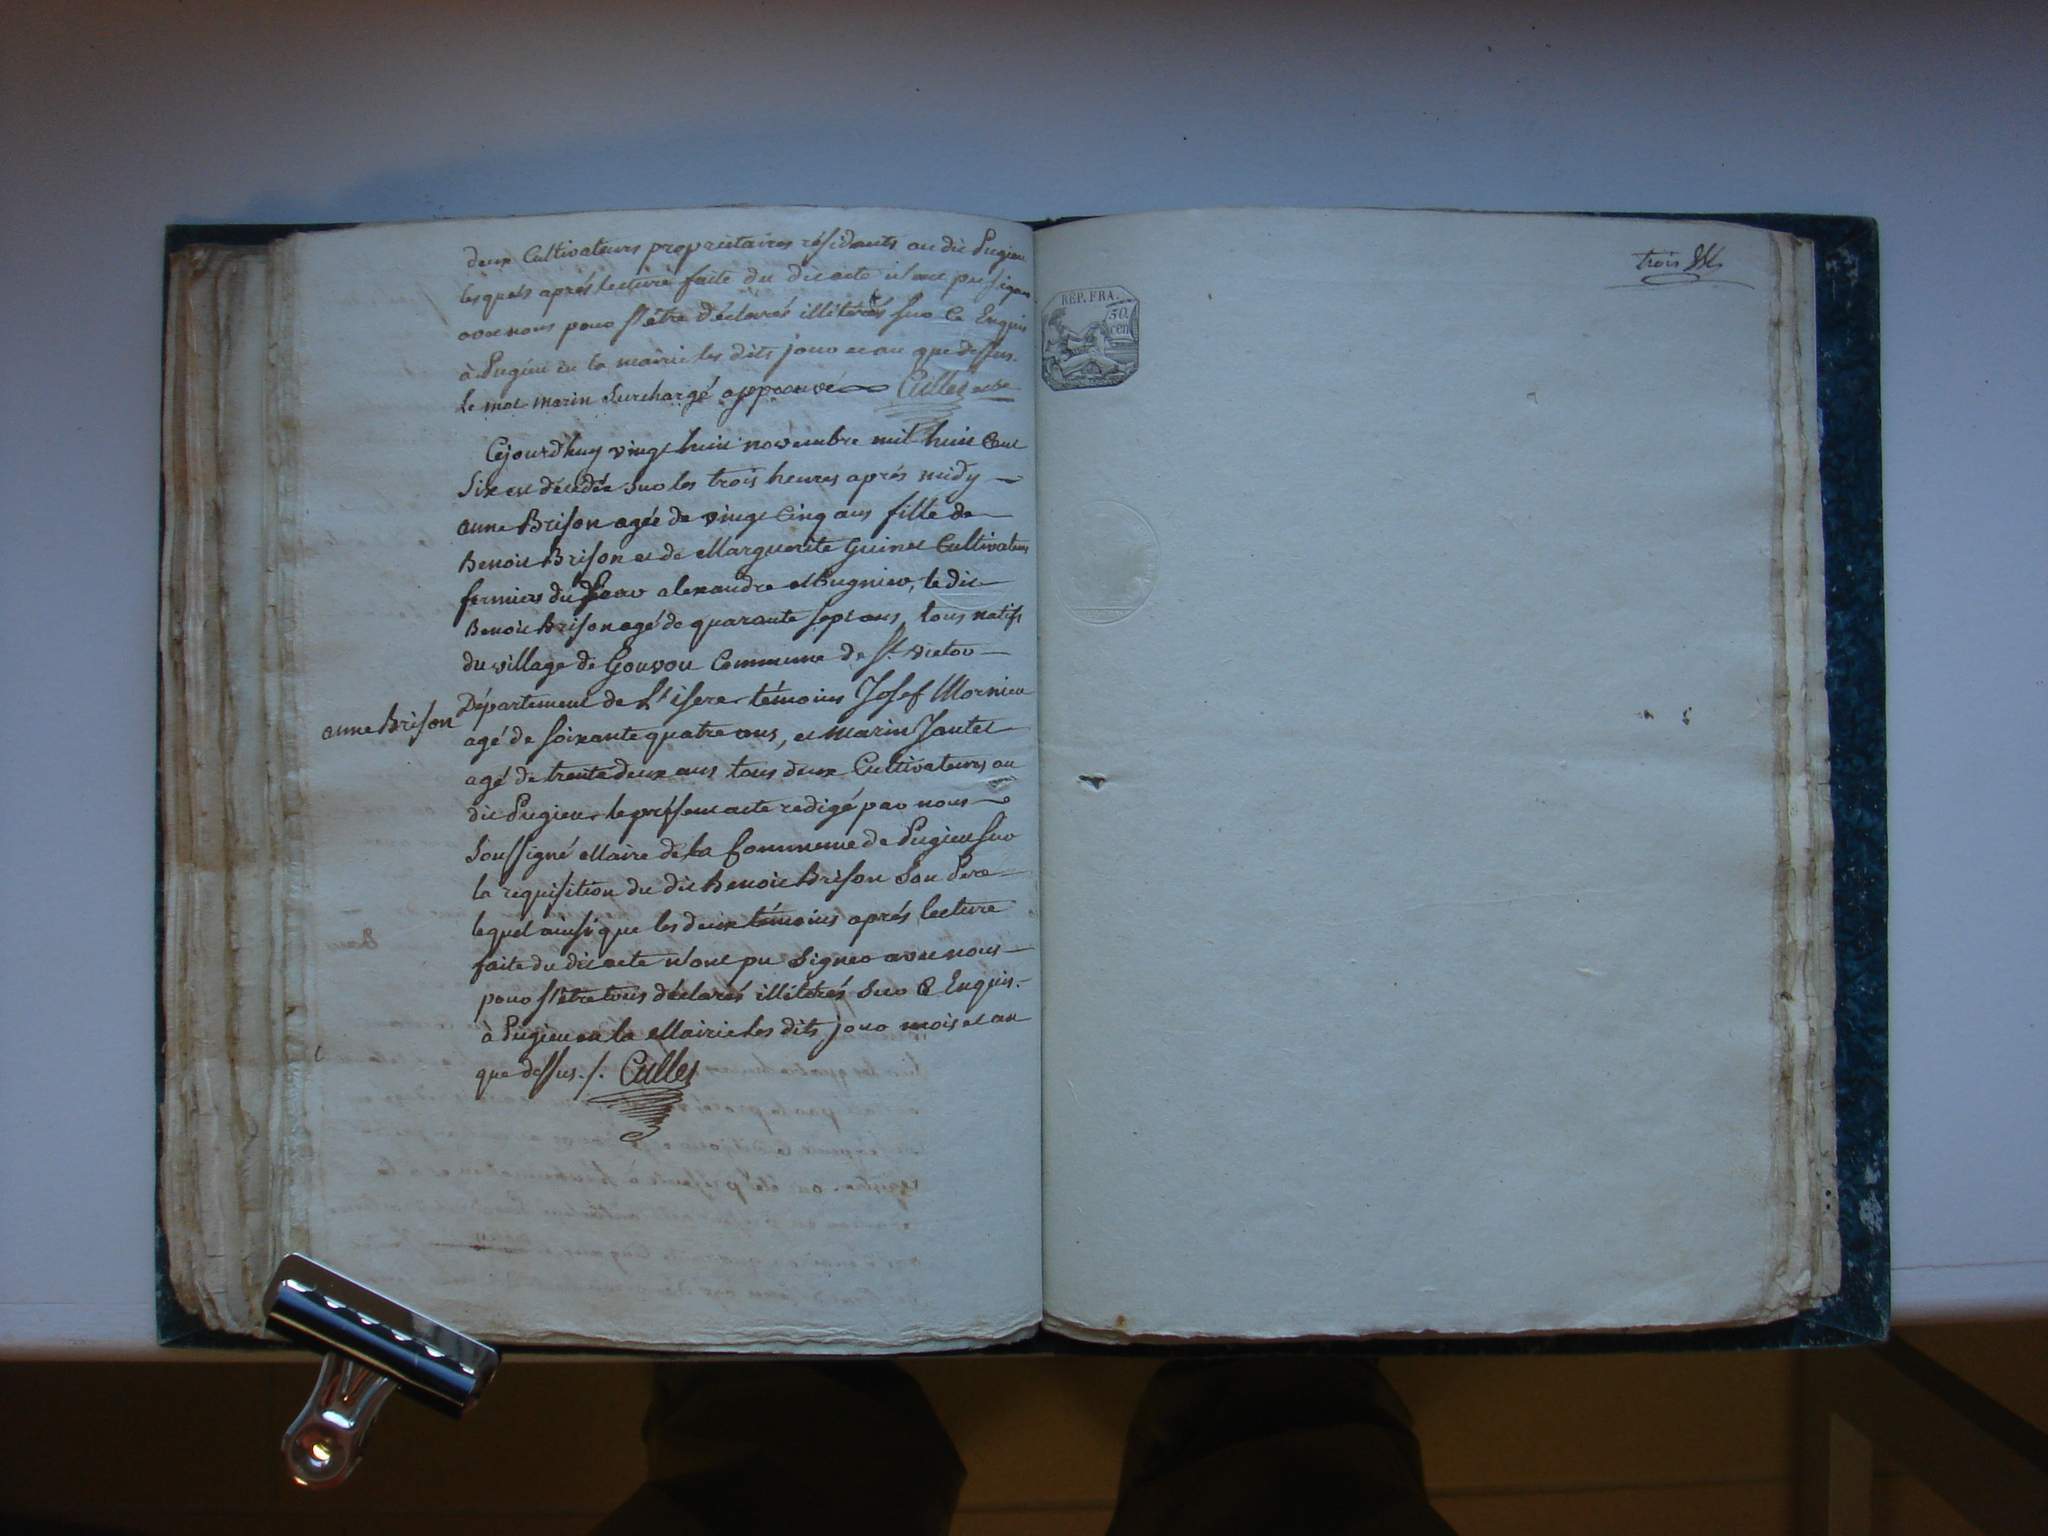 deux Cultivateurs proprietaires résidants au dit Pugieu
lesquels aprés lecture faite du dit acte n'ont pu signer
avec nous pour s'être déclarés illitérés sur ce Enquis
à Pugieu en la mairie les dits jour et an que dessus.
le mot marin Surchargé approuvé Cullet
Cejourdhuy vingt huit novembre mil huit Cent
Six est décédée Sur les trois heures aprés midy
anne Brison agée de vingt Cinq ans fille de
Benoit Brison et de Marguerite Guinet Cultivateurs
fermiers du alexandre Mugnier, le dit
Benoit Brison agé de quarante sept ans, tous natifs
du village de Gouvou Commune de St. victor
Département de L'isere témoins Josef Mornieu
anne Brison
agé de soixante quatre ans, et Marin Jantet
agé de trente deux ans tous deux Cultivateurs au
dit Pugieu le présent acte redigé par nous
Soussigné Maire de la Commune de Pugieu sur
la requisition du dit Benoit Brison Son Pere
lequel ainsi que les deux témoins aprés lecture
faite du dit acte n'ont pu Signer avec nous
pour s'être tous déclarés illitérés Sur Ce Enquis.
à Pugieu en la Mairie les dits jour mois et an
que dessus./. Cullet
trois
REP. FRA.
50.
cen